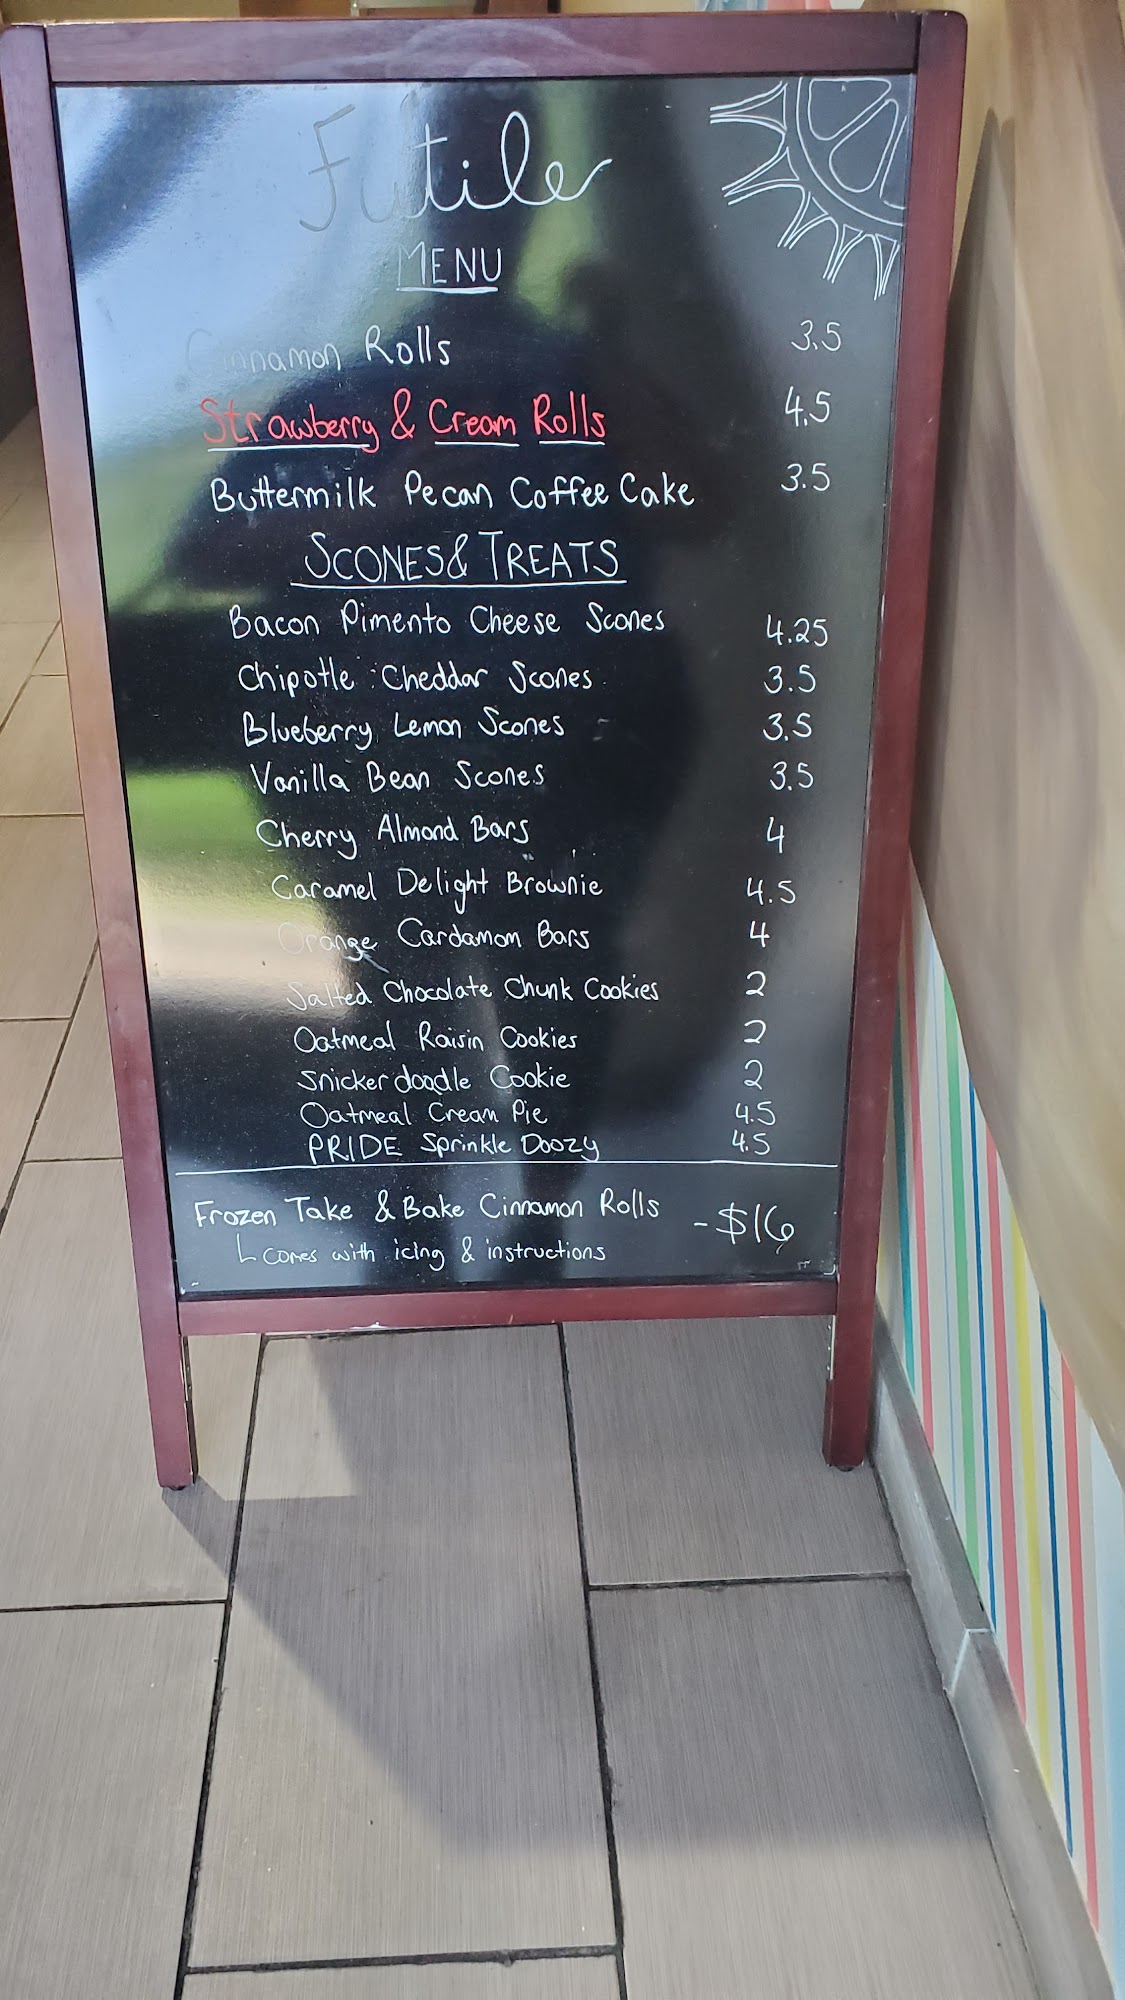 Futile
MENU
Cinnamon Rolls 3.5
Strawberry & Cream Rolls 4.5
Buttermilk Pecan Coffee Cake 3.5
SCONES & TREATS
Bacon Pimento Cheese Scones 4.25
Chipotle Cheddar Scones 3.5
Blueberry Lemon Scones 3.5
Vanilla Bean Scones 3.5
Cherry Almond Bars 4
Caramel Delight Brownie 4.5
Orange Cardamom Bars 4
Salted Chocolate Chunk Cookies 2
Oatmeal Raisin Cookies 2
Snickerdoodle Cookie 2
Oatmeal Cream Pie 4.5
PRIDE Sprinkle Doozy 4.5
Frozen Take & Bake Cinnamon Rolls - $16
Comes with icing & instructions